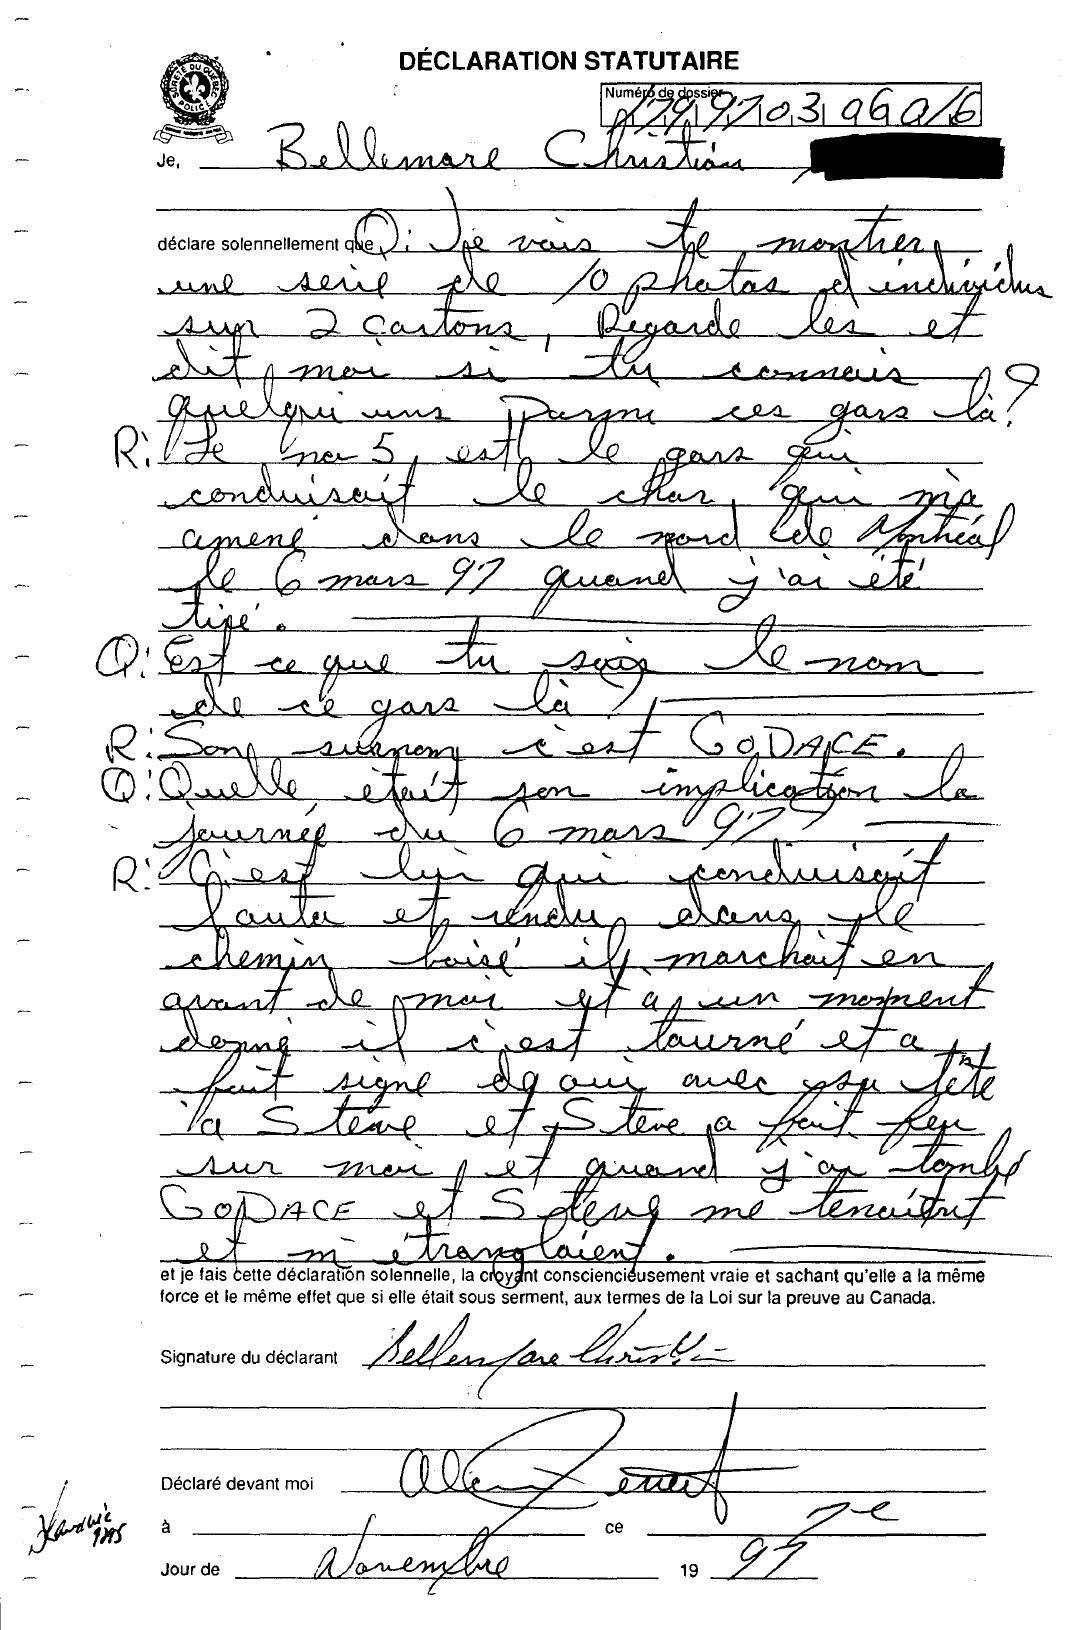 DÉCLARATION STATUTAIRE
SÛRETÉ DU QUÉBEC
POLICE
Numéro de dossier
Je, Bellemare Christian
déclare solennellement que Q: Je vais te montrer
une serie de 10 photos d'individus
sur 2 cartons, Regarde les et
dit moi si tu connais
quelqu'uns parmi ces gars là?
R: Le no 5, est le gars qui
conduisait le char, qui m'a
amené dans le nord de Montréal
le 6 mars 97 quand j'ai été
tiré.
Q: Est ce que tu sais le nom
de ce gars là?
R: Son surnom c'est GODACE.
Q: Quelle était son implication la
journée du 6 mars 97?
R: C'est lui qui conduisait
l'auto et rendu dans le
chemin boisé il marchait en
avant de moi et a un moment
donné il c'est tourné et a
fait signe de oui avec sa tête
à Steve et Steve a fait feu
sur moi, et quand j'ai tombé
GODACE et Steve me tenaitent
et m'étranglaient.
et je fais cette déclaration solennelle, la croyant consciencieusement vraie et sachant qu'elle a la même
force et le même effet que si elle était sous serment, aux termes de la Loi sur la preuve au Canada.
Signature du déclarant Bellemare Christian
Déclaré devant moi
à ce 7e
Jour de Novembre 1997